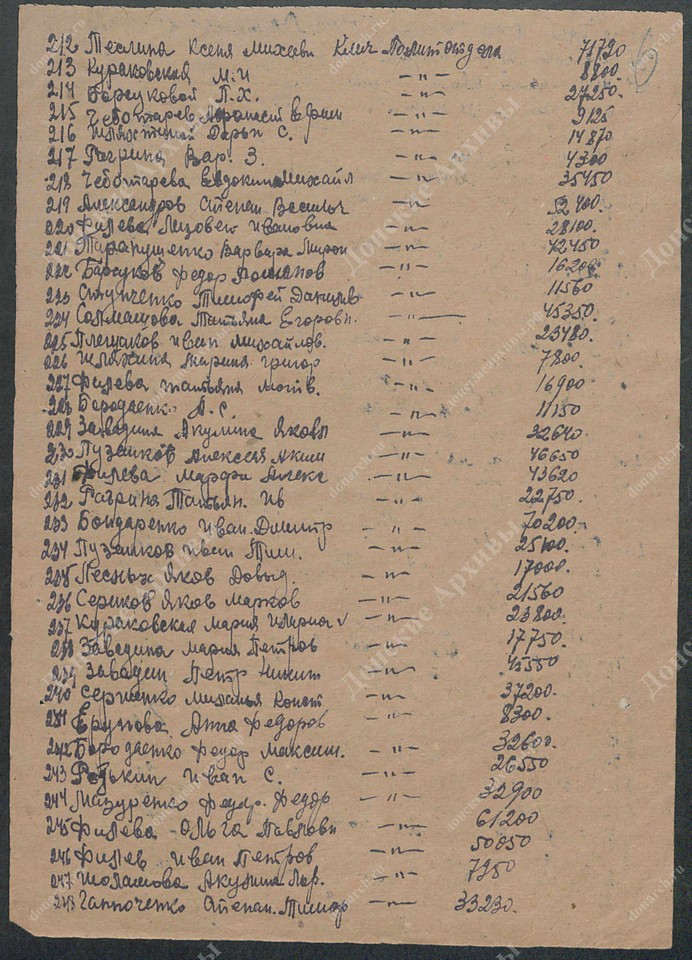 212 Теслина Ксеня Михееви Клич Политотдела 71720
213 Кураковская М.И —"— 8800.
214 Борсуковой П.Х. —"— 27250.
215 Чеботарев Афанасий Ефим —"— 9125
216 Шляхтиной Дарьи С. —"— 14870
217 Рагрина Вар. З. —"— 4300
218 Чеботарева Евдокия Михайл —"— 35450
219 Александров Степан Васильч —"— 52400.
220 Филева Лизовет Ивановна —"— 28100.
221 Тарапущенко Варвара Мирон —"— 42450
222 Барсуков Федор Романов —"— 16200.
223 Ступченко Тимофей Данилов —"— 11560
224 Солмащова Татьяна Егоровн. —"— 45350.
225 Плешаков Иван Михайлов. —"— 23480.
226 Шляхина Марина Григор —"— 7800.
227 Филева Татьяна Матв. —"— 16900
228 Бородаенко А.С. —"— 11150
229 Заводина Акулина Яковл —"— 32640
230 Пузанков Алексей Аким —"— 46650
231 Филева Марфа Алекс —"— 43620
232 Рагрина Татьян. Ив —"— 22750.
233 Бондаренко Иван Дмитр —"— 70200.
234 Пузанков Иван Тим. —"— 25100.
235 Лесных Яков Давыд. —"— 17000.
236 Сериков Яков Марков —"— 21560
237 Кураковская Мария Илларио —"— 23800.
238 Заведина Мария Петров —"— 17750.
239 Заводин Петр Никит —"— 45550
240 Сергиенко Михалья Конст —"— 37200.
241 Ерунова Анна Федоров —"— 8300.
242 Бородаенко Федор Максим. —"— 32600.
243 Редькин Иван С. —"— 26550
244 Мазуренко Федр. Федор —"— 32900
245 Филева Ольга Павловн —"— 61200
246 Филев Иван Петров —"— 50050
247 Шоламова Акулина Лар. —"— 7950
248 Ганноченко Степан. Тимоф —"— 33230.